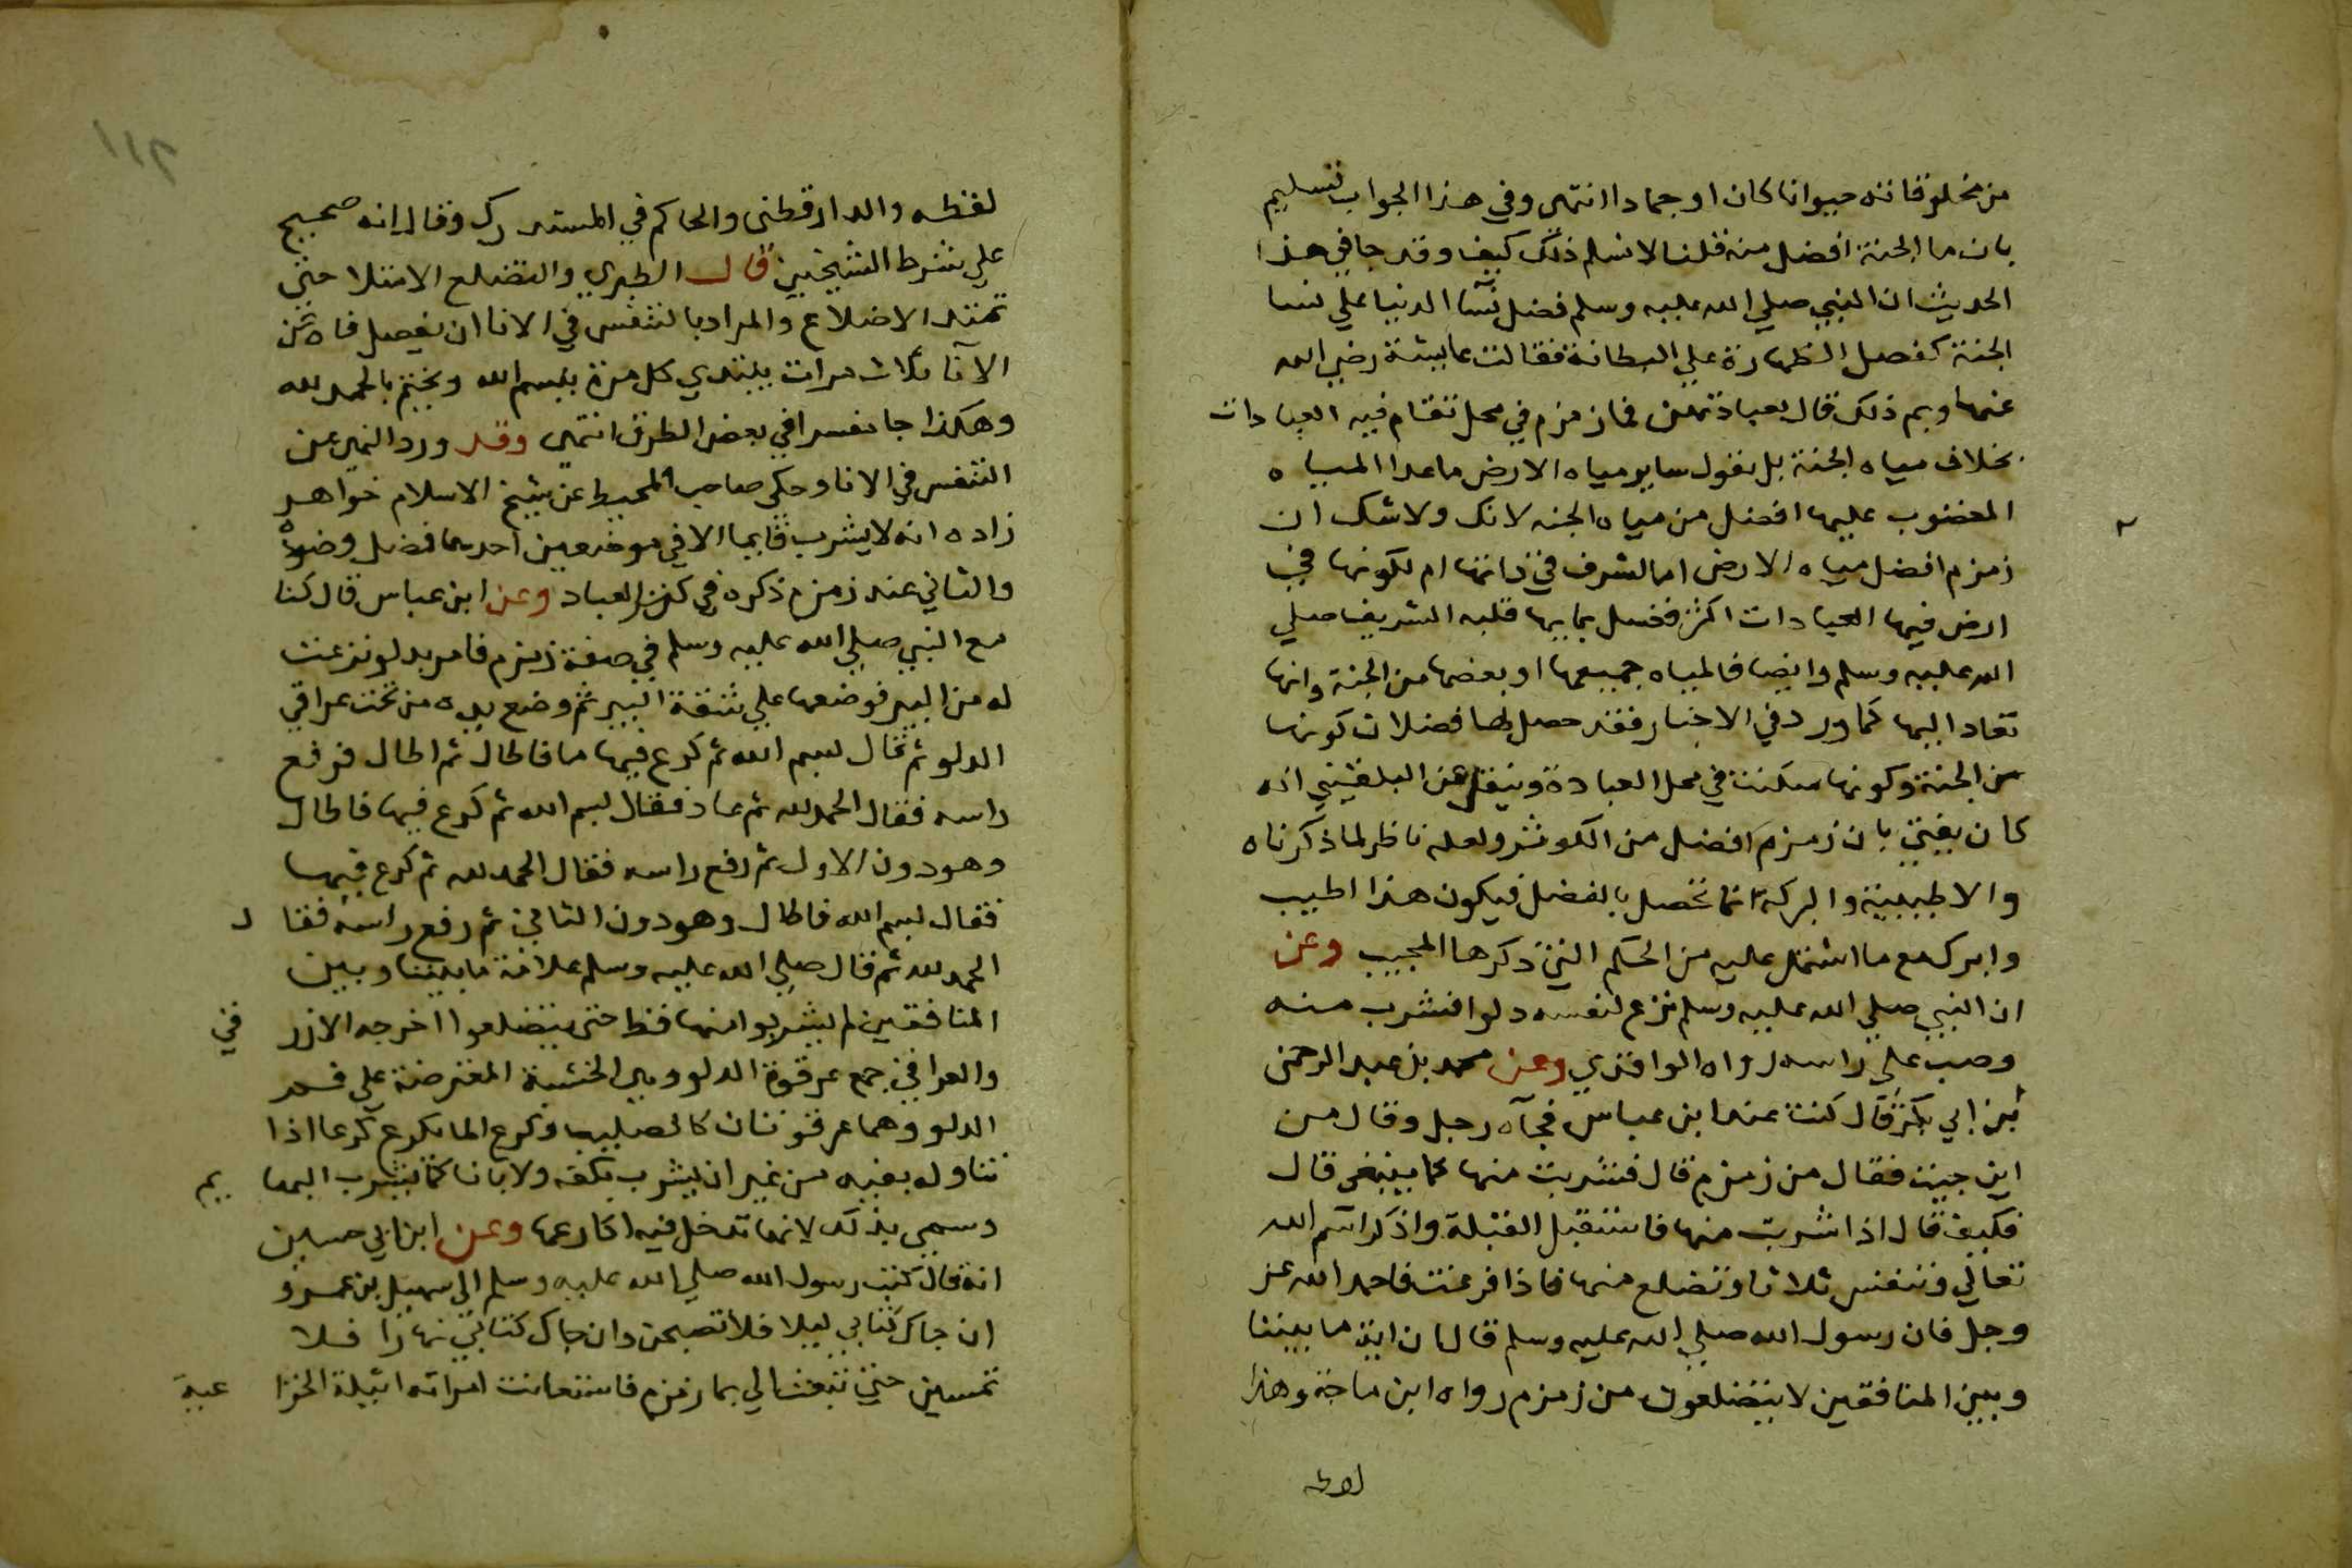 من مخلوقاته حيوانا كان او جمادا انتهى وفي هذا الجواب تسليم
بان ما الجنة افضل منه قلنا لا نسلم ذلك كيف وقد جا في هذا
الحديث ان النبي صلي الله عليه وسلم فضل نسآ الدنيا علي نسا
الجنة كفضل الظهارة علي البطانة فقالت عايشة رضي الله
عنها وبم ذلك قال بعبادتهن فما زمزم في محل تقام فيه العبادات
بخلاف مياه الجنة بل نقول ساير مياه الارض ماعدا المياه
المغضوب عليها افضل من مياه الجنه لذلك ولا شك ان
زمزم افضل مياه الارض اما لشرف في ذاتها ام لكونها في
ارض فيها العبادات اكثر فغسل بمايها قلبه الشريف صلي
الله عليه وسلم وايضا فالمياه جميعها او بعضها من الجنة وانها
تعاد اليها كما ورد في الاخبار فقد حصل لها فضلان كونها
من الجنة وكونها سكنت في محل العبادة وينقل عن البلقيني انه
كان يفتي بان زمزم افضل من الكوثر ولعله ناظر لما ذكرناه
والاطيبية والبركة انما تحصل بالفضل فيكون هذا اطيب
وابرك مع ما اشتمل عليه من الحكم التي ذكرها المجيب وعن
ان النبي صلي الله عليه وسلم نزع لنفسه دلوا فشرب منه
وصب علي راسه رواه الواقدي وعن محمد بن عبد الرحمن
بن ابي بكر قال كنت عند ابن عباس فجآه رجل وقال من
اين جيت فقال من زمزم قال فشربت منها كما ينبغى قال
فكيف قال اذا شربت منها فاستقبل القبلة واذكر اسم الله
تعالي وتنفس ثلاثا وتضلع منها فاذا فرغت فاحمد الله عز
وجل فان رسول الله صلي الله عليه وسلم قال ان اية ما بيننا
وبين المنافقين لا يتضلعون من زمزم رواه ابن ماجة وهذا
لفظه
١١٢
لفظه والدارقطنى والحاكم في المستدرك وقال انه صحيح
علي شرط الشيخين قال الطبري والتضلع الامتلا حتى
تمتد الاضلاع والمراد بالتنفس في الانا ان يفصل فاه عن
الآنا ثلاث مرات يبتدي كل مرة ببسم الله ويختم بالحمد لله
وهكذا جا مفسرا في بعض الطرق انتهى وقد ورد النهي عن
التنفس في الانا وحكي صاحب المحيط عن شيخ الاسلام خواهر
زاده انه لا يشرب قايما الا في موضعين احدهما فضل وضوه
والثاني عند زمزم ذكره في كنز العباد وعن ابن عباس قال كنا
مع النبي صلي الله عليه وسلم في صفة زمزم فامر بدلو نزعت
له من البير فوضعها علي شفة البير ثم وضع يده من تحت عراقي
الدلو ثم قال بسم الله ثم كرع فيها فاطال ثم اطال فرفع
راسه فقال الحمد لله ثم عاد فقال بسم الله ثم كرع فيها فاطال
وهو دون الاول ثم رفع راسه فقال الحمد لله ثم كرع فيها
فقال بسم الله فاطال وهو دون الثاني ثم رفع راسه فقال
الحمد لله ثم قال صلي الله عليه وسلم علامة ما بيننا وبين
المنافقين لم يشربوا منها قط حتى يتضلعوا اخرجه الازرقي
والعراقي جمع عرقوة الدلو وهي الخشبة المعترضة علي فم
الدلو وهما عرقوتان كالصليب وكرع الما يكرع كرعا اذا
تناوله بفيه من غير ان يشرب بكفه ولا بانا كما تشرب البهايم
وسمي بذلك لانها تدخل فيه اكارعها وعن ابن ابي حسين
انه قال كتب رسول الله صلي الله عليه وسلم الى سهيل بن عمرو
ان جاك كتابي ليلا فلا تصبحن وان جاك كتابي نهارا فلا
تمسين حتي تبعث الي بما زمزم فاستعانت امراته اثيلة الخزاعية